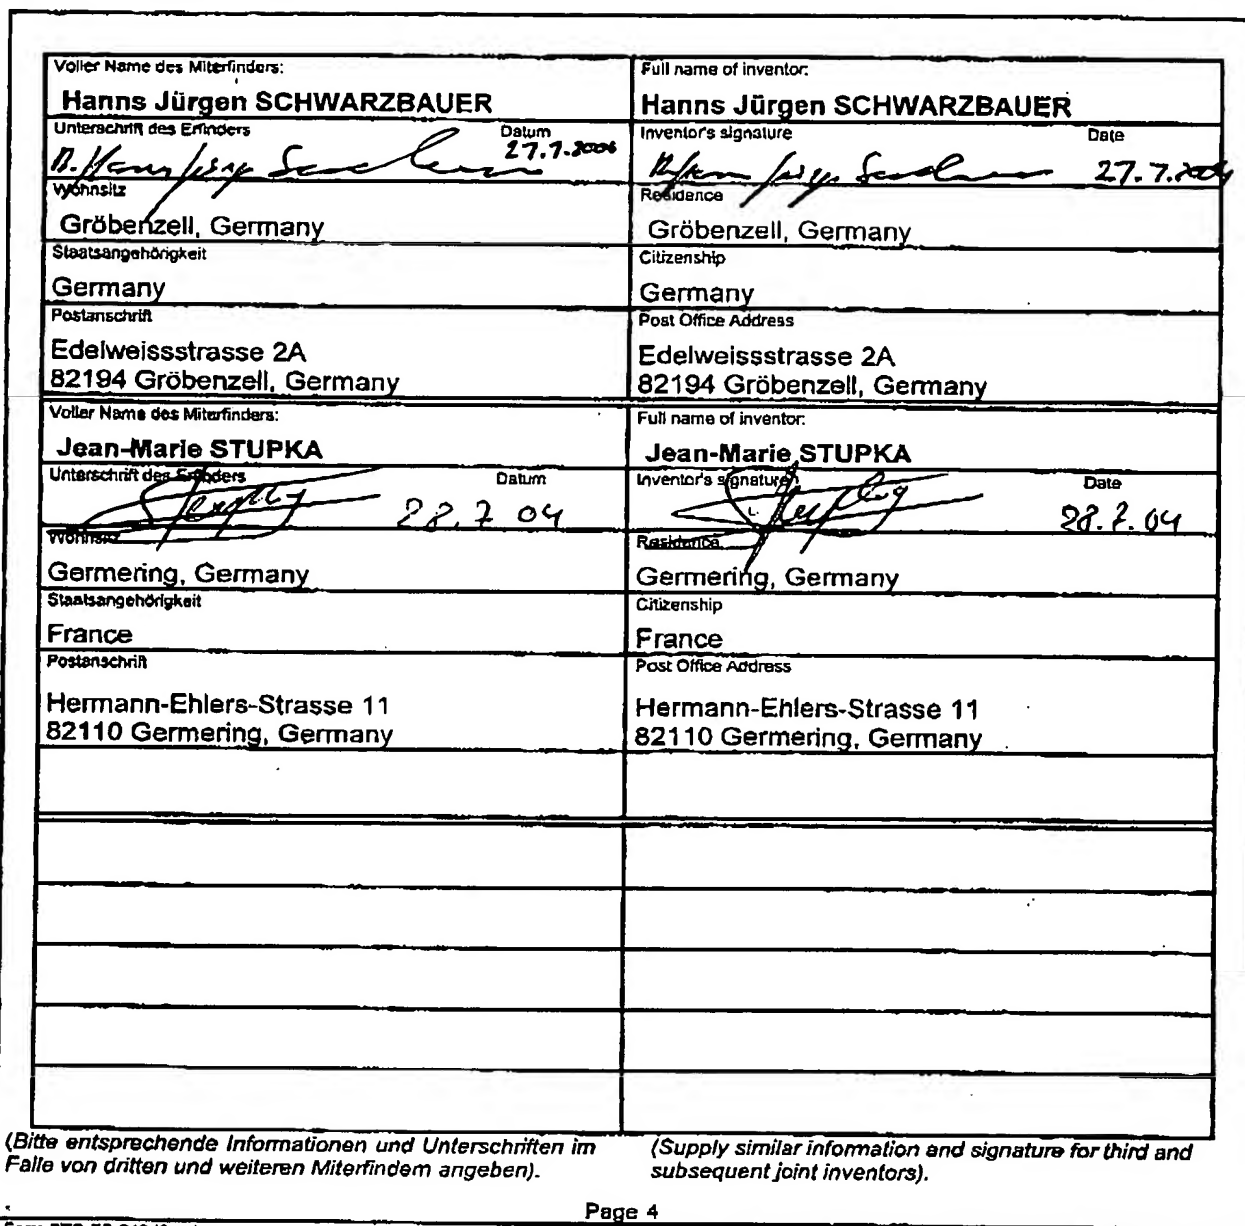 Voller Name des Miterfinders:
Hanns Jürgen SCHWARZBAUER
Unterschrift des Erfinders Datum
27.7.2004
Wohnsitz
Gröbenzell, Germany
Staatsangehörigkeit
Germany
Postanschrift
Edelweissstrasse 2A
82194 Gröbenzell, Germany
Voller Name des Miterfinders:
Jean-Marie STUPKA
Unterschrift des Erfinders Datum
28.7.04
Wohnsitz
Germering, Germany
Staatsangehörigkeit
France
Postanschrift
Hermann-Ehlers-Strasse 11
82110 Germering, Germany
(Bitte entsprechende Informationen und Unterschriften im
Falle von dritten und weiteren Miterfindern angeben).
Full name of inventor:
Hanns Jürgen SCHWARZBAUER
Inventor's signature Date
27.7.2004
Residence
Gröbenzell, Germany
Citizenship
Germany
Post Office Address
Edelweissstrasse 2A
82194 Gröbenzell, Germany
Full name of inventor:
Jean-Marie STUPKA
Inventor's signature Date
28.7.04
Residence
Germering, Germany
Citizenship
France
Post Office Address
Hermann-Ehlers-Strasse 11
82110 Germering, Germany
(Supply similar information and signature for third and
subsequent joint inventors).
Page 4